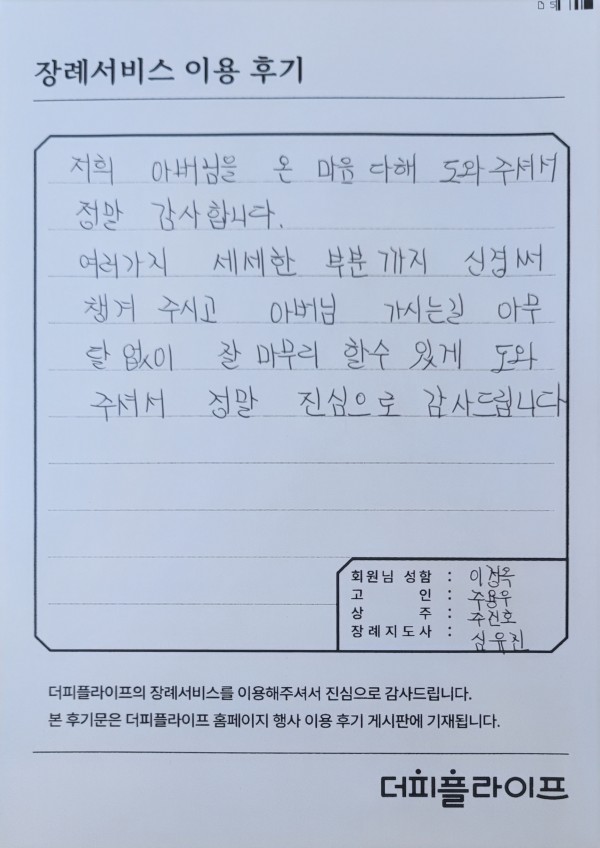 장례서비스 이용 후기
저희 아버님을 온 마음 다해 도와 주셔서
정말 감사합니다.
여러가지 세세한 부분 까지 신경써
챙겨 주시고 아버님 가시는길 아무
탈 없이 잘 마무리 할수 있게 도와
주셔서 정말 진심으로 감사드립니다
회원님 성함 : 이정옥
고 인 : 주용우
상 주 : 주건호
장례지도사 : 심유진
더피플라이프의 장례서비스를 이용해주셔서 진심으로 감사드립니다.
본 후기문은 더피플라이프 홈페이지 행사 이용 후기 게시판에 기재됩니다.
더피플라이프